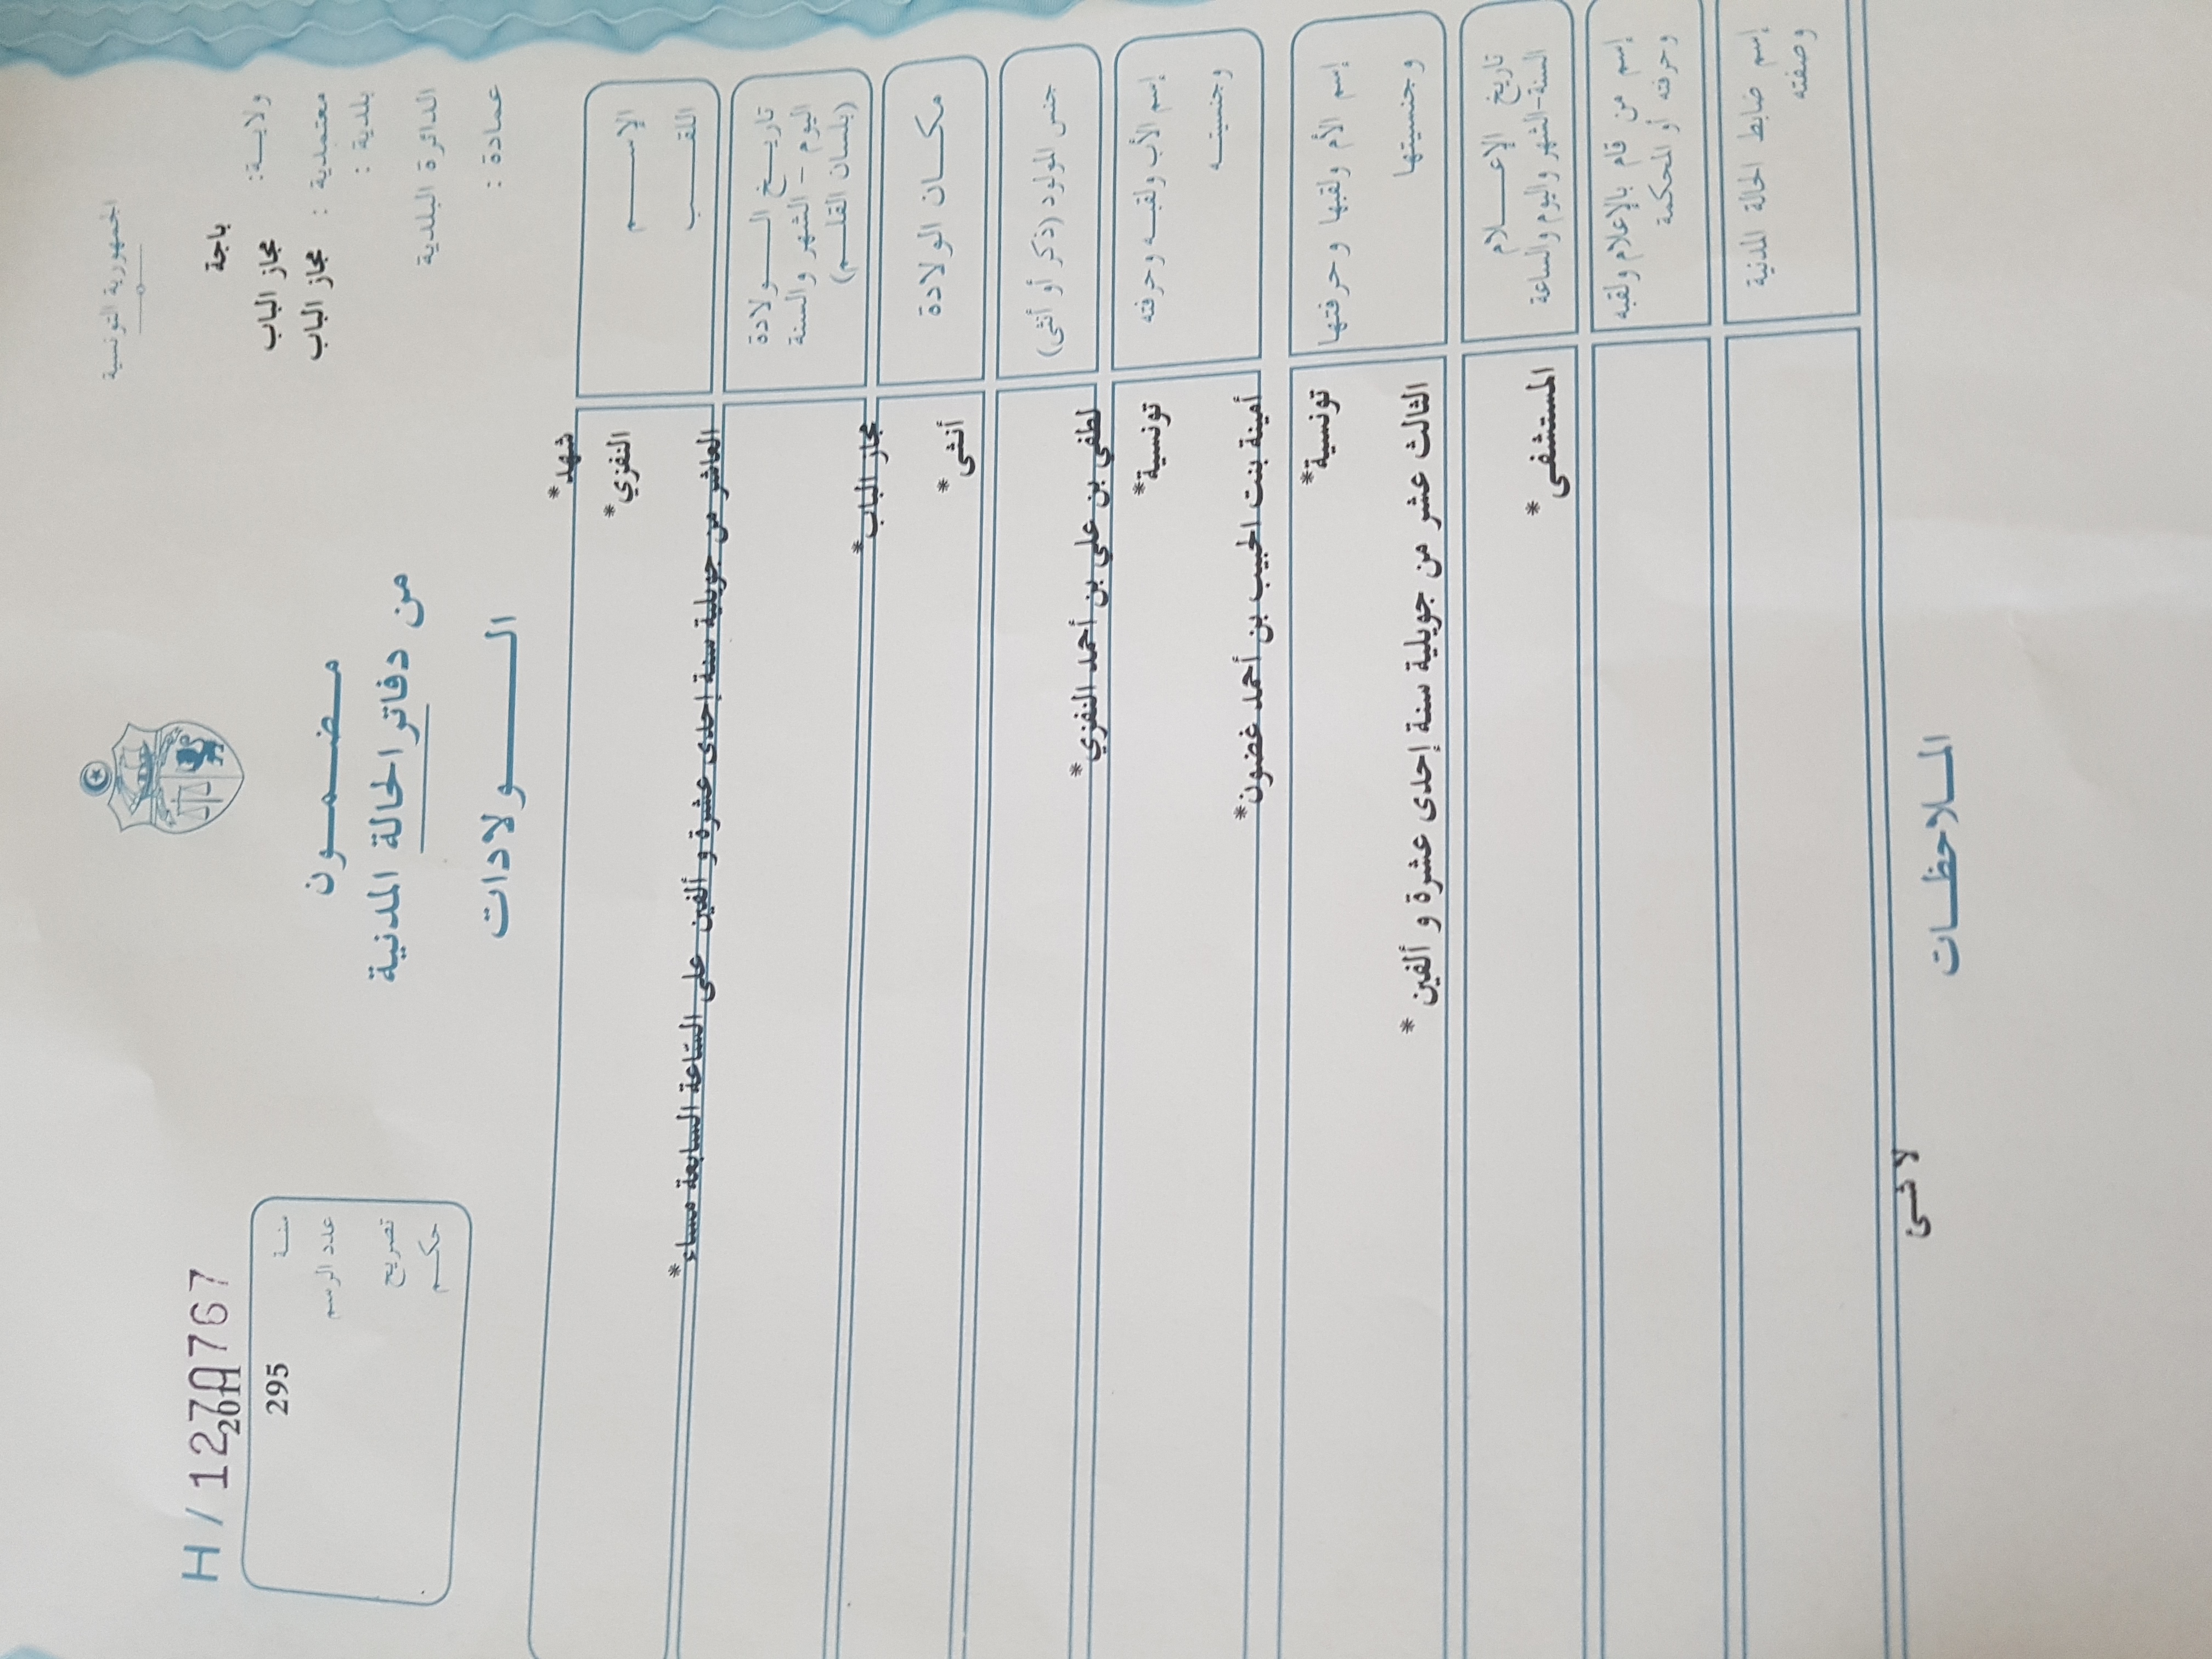 الجمهورية التونسية
ولايـة:
باجة
معتمدية :
مجاز الباب
بلدية :
مجاز الباب
الدائرة البلدية
عمادة :
مضمون
من دفاتر الحالة المدنية
الـولادات
H / 1270767
سنـة
2011
عدد الرسم
295
تصريح
حكـم
الإسـم
شهد*
اللقـب
النفزي*
تاريـخ الـولادة
اليوم – الشهر والسنة
(بلسان القلـم)
العاشر من جويلية سنة إحدى عشرة و ألفين على السّاعة السابعة مساء*
مكـان الولادة
مجاز الباب*
جنس المولود (ذكر أو أنثى)
أنثى *
إسم الأب ولقبـه وحرفته
لطفي بن علي بن أحمد النفزي*
وجنسيتـه
تونسية*
إسم الأم ولقبها وحرفتها
أمينة بنت الحبيب بن أحمد غضون*
وجنسيتها
تونسية*
تاريخ الإعـلام
السنة-الشهر واليوم والساعة
الثالث عشر من جويلية سنة إحدى عشرة و ألفين *
إسم من قام بالإعلام ولقبه
وحرفته أو المحكمة
المستشفى *
إسم ضابط الحالة المدنية
وصفته
المـلاحظـات
لا شئ